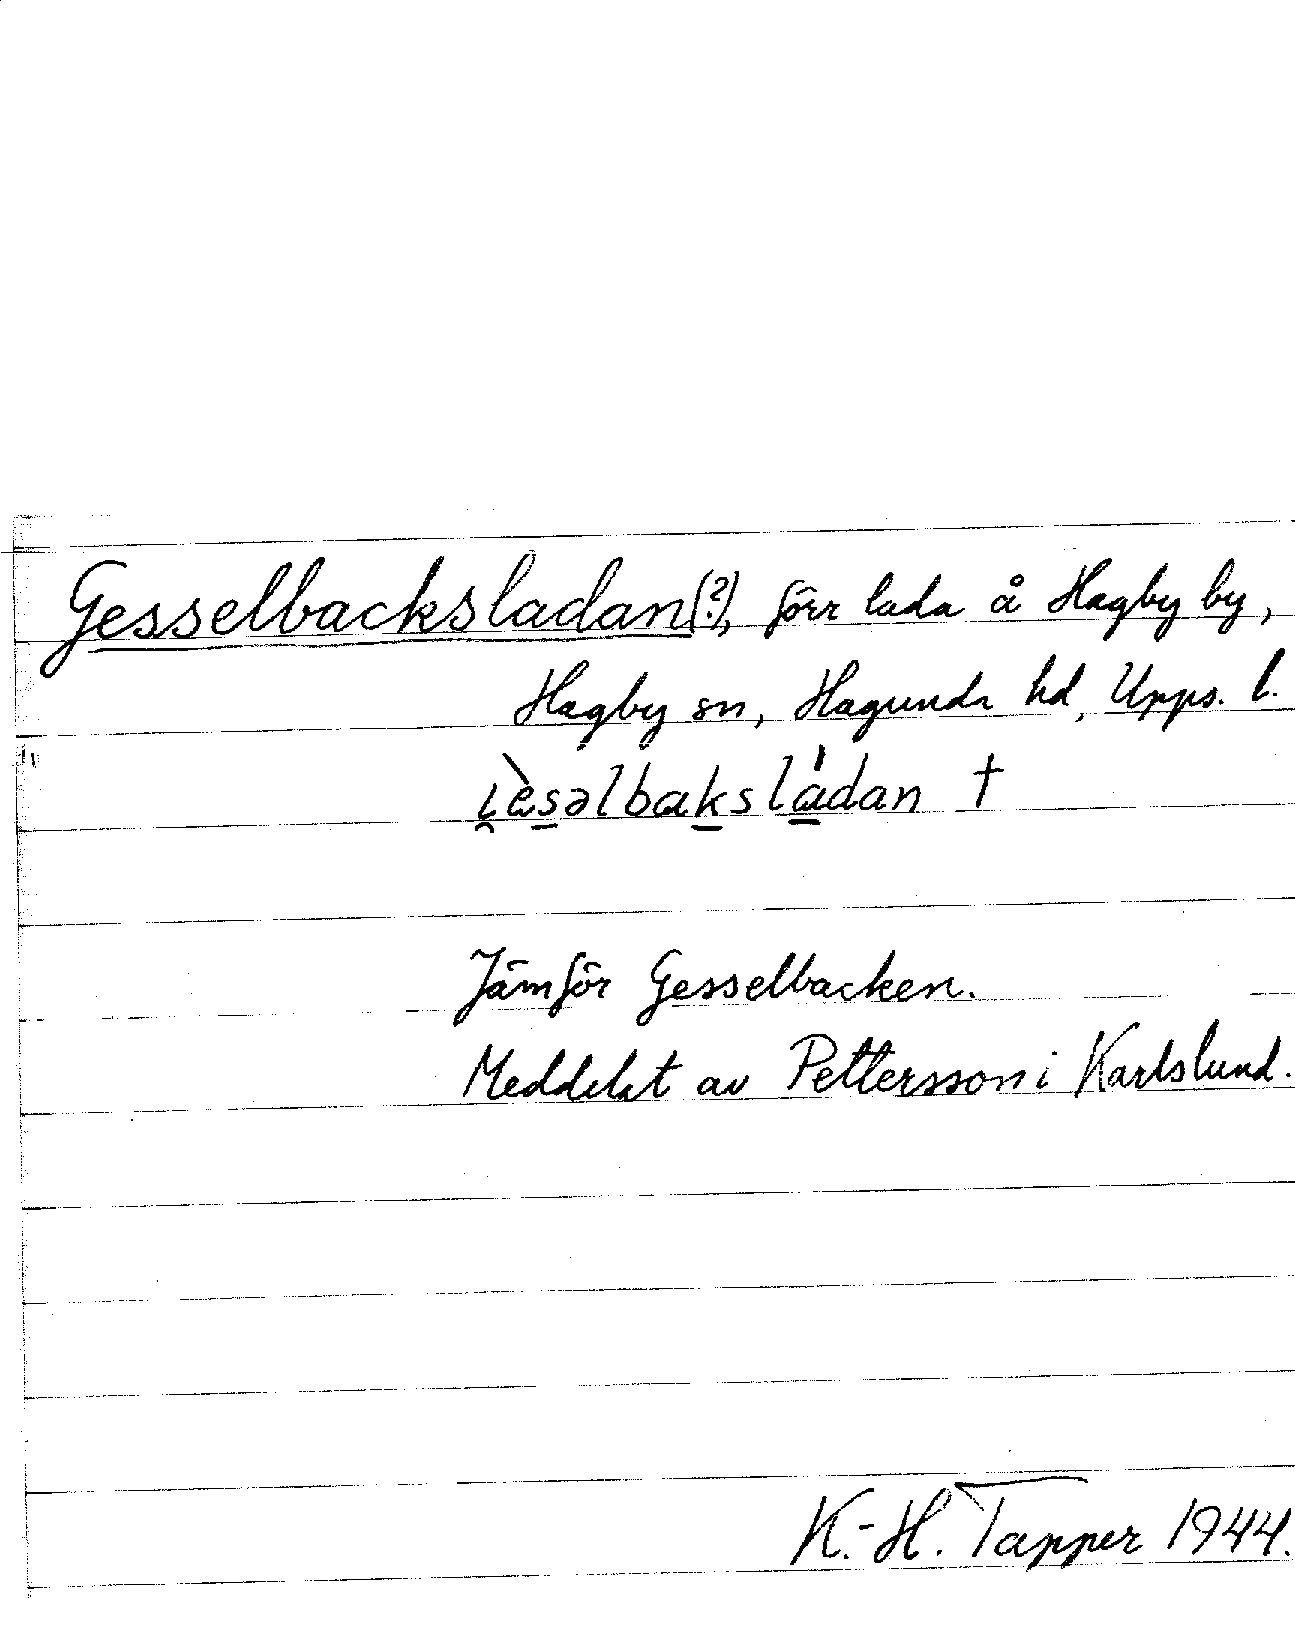 Gesselbacksladan(?), förr lada å Hagby by,
Hagby sn, Hagunda hd, Upps. l.
i̯èsəlbaksládan †
Jämför Gesselbacken.
Meddelat av Pettersson i Karlslund.
K.-H. Tapper 1944.